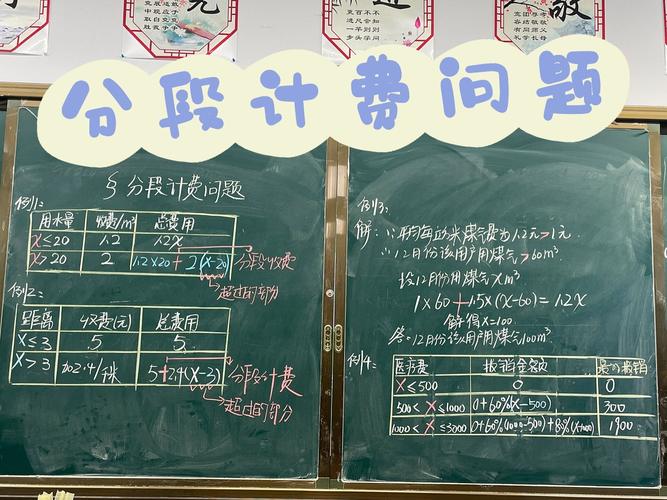 分段计费问题
§分段计费问题
例1:
用水量 收费/m³ 总费用
x≤20 1.2 1.2x
x>20 2 1.2×20+2(x-20) 分段收费
超过的部分
例2:
距离 收费(元) 总费用
x≤3 5 5
x>3 加2.4/千米 5+2.4(x-3) 分段计费
超过的部分
例3:
解: ∵平均每立方米煤气费为1.2元>1元
∴12月份该用户用煤气>60m³
设12月份用煤气xm³
1×60+1.5×(x-60)=1.2x
解得x=100.
答:12月份该用户用煤气100m³
例4:
医疗费 报销金额 最高报销
x≤500 0 0
500<x≤1000 0+60%(x-500) 300
1000<x≤3000 0+60%(1000-500)+80%(x-1000) 1900